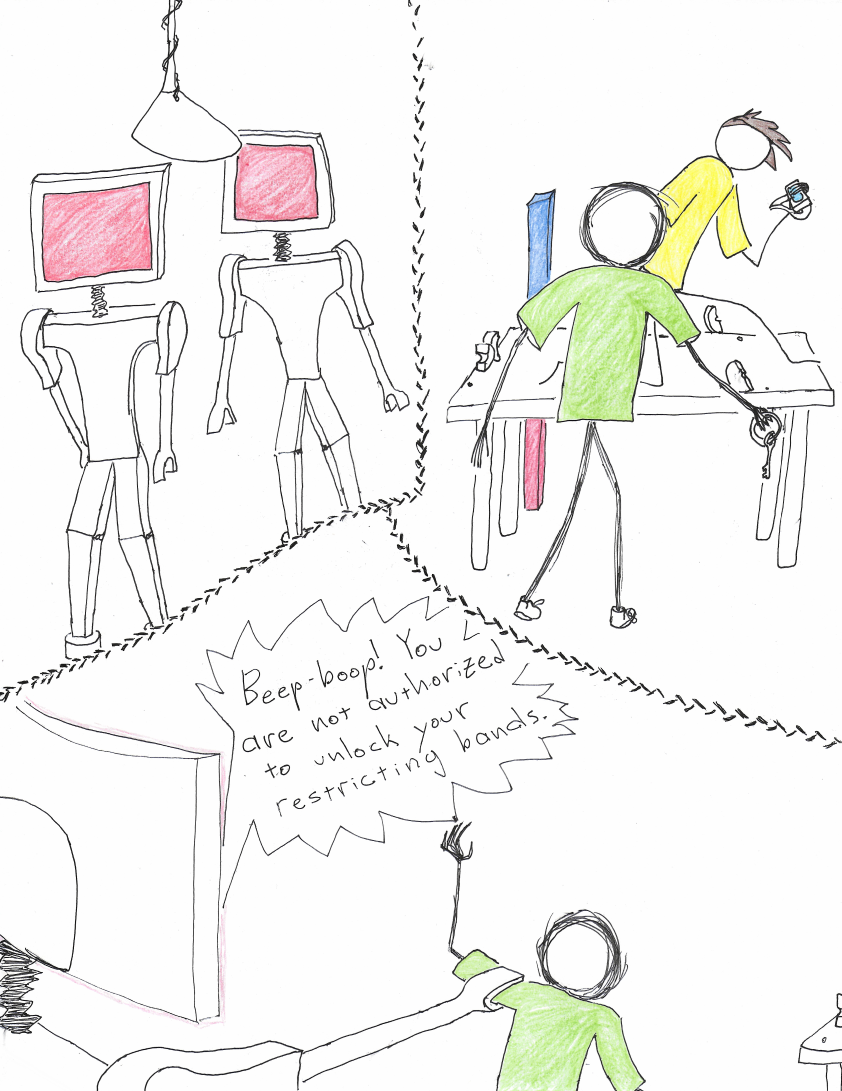 Beep-boop! You
are not authorized
to unlock your
restricting bands.